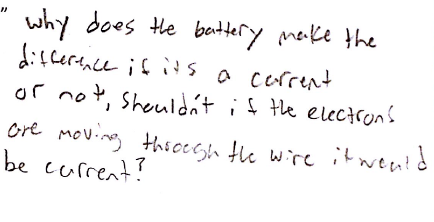 " why does the battery make the
difference if its a current
or not, shouldn't if the electrons
are moving through the wire it would
be current?